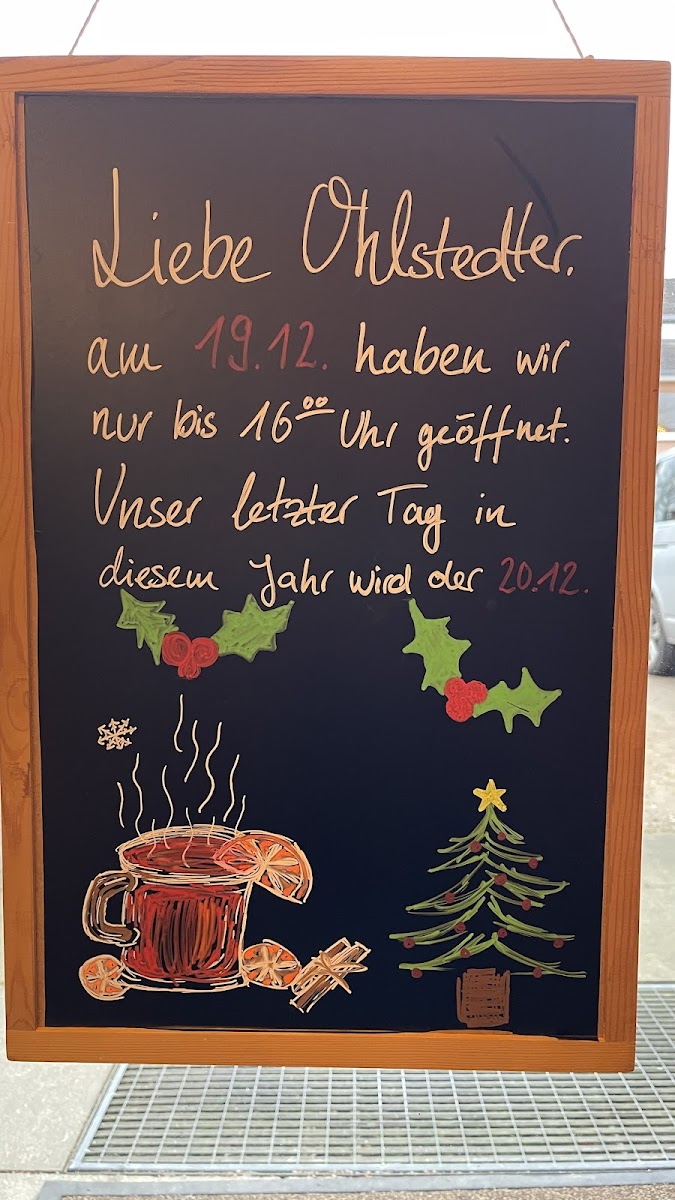 Liebe Ohlstedter.
am 19.12. haben wir
nur bis 16⁰⁰ Uhr geöffnet.
Unser letzter Tag in
diesem Jahr wird der 20.12.